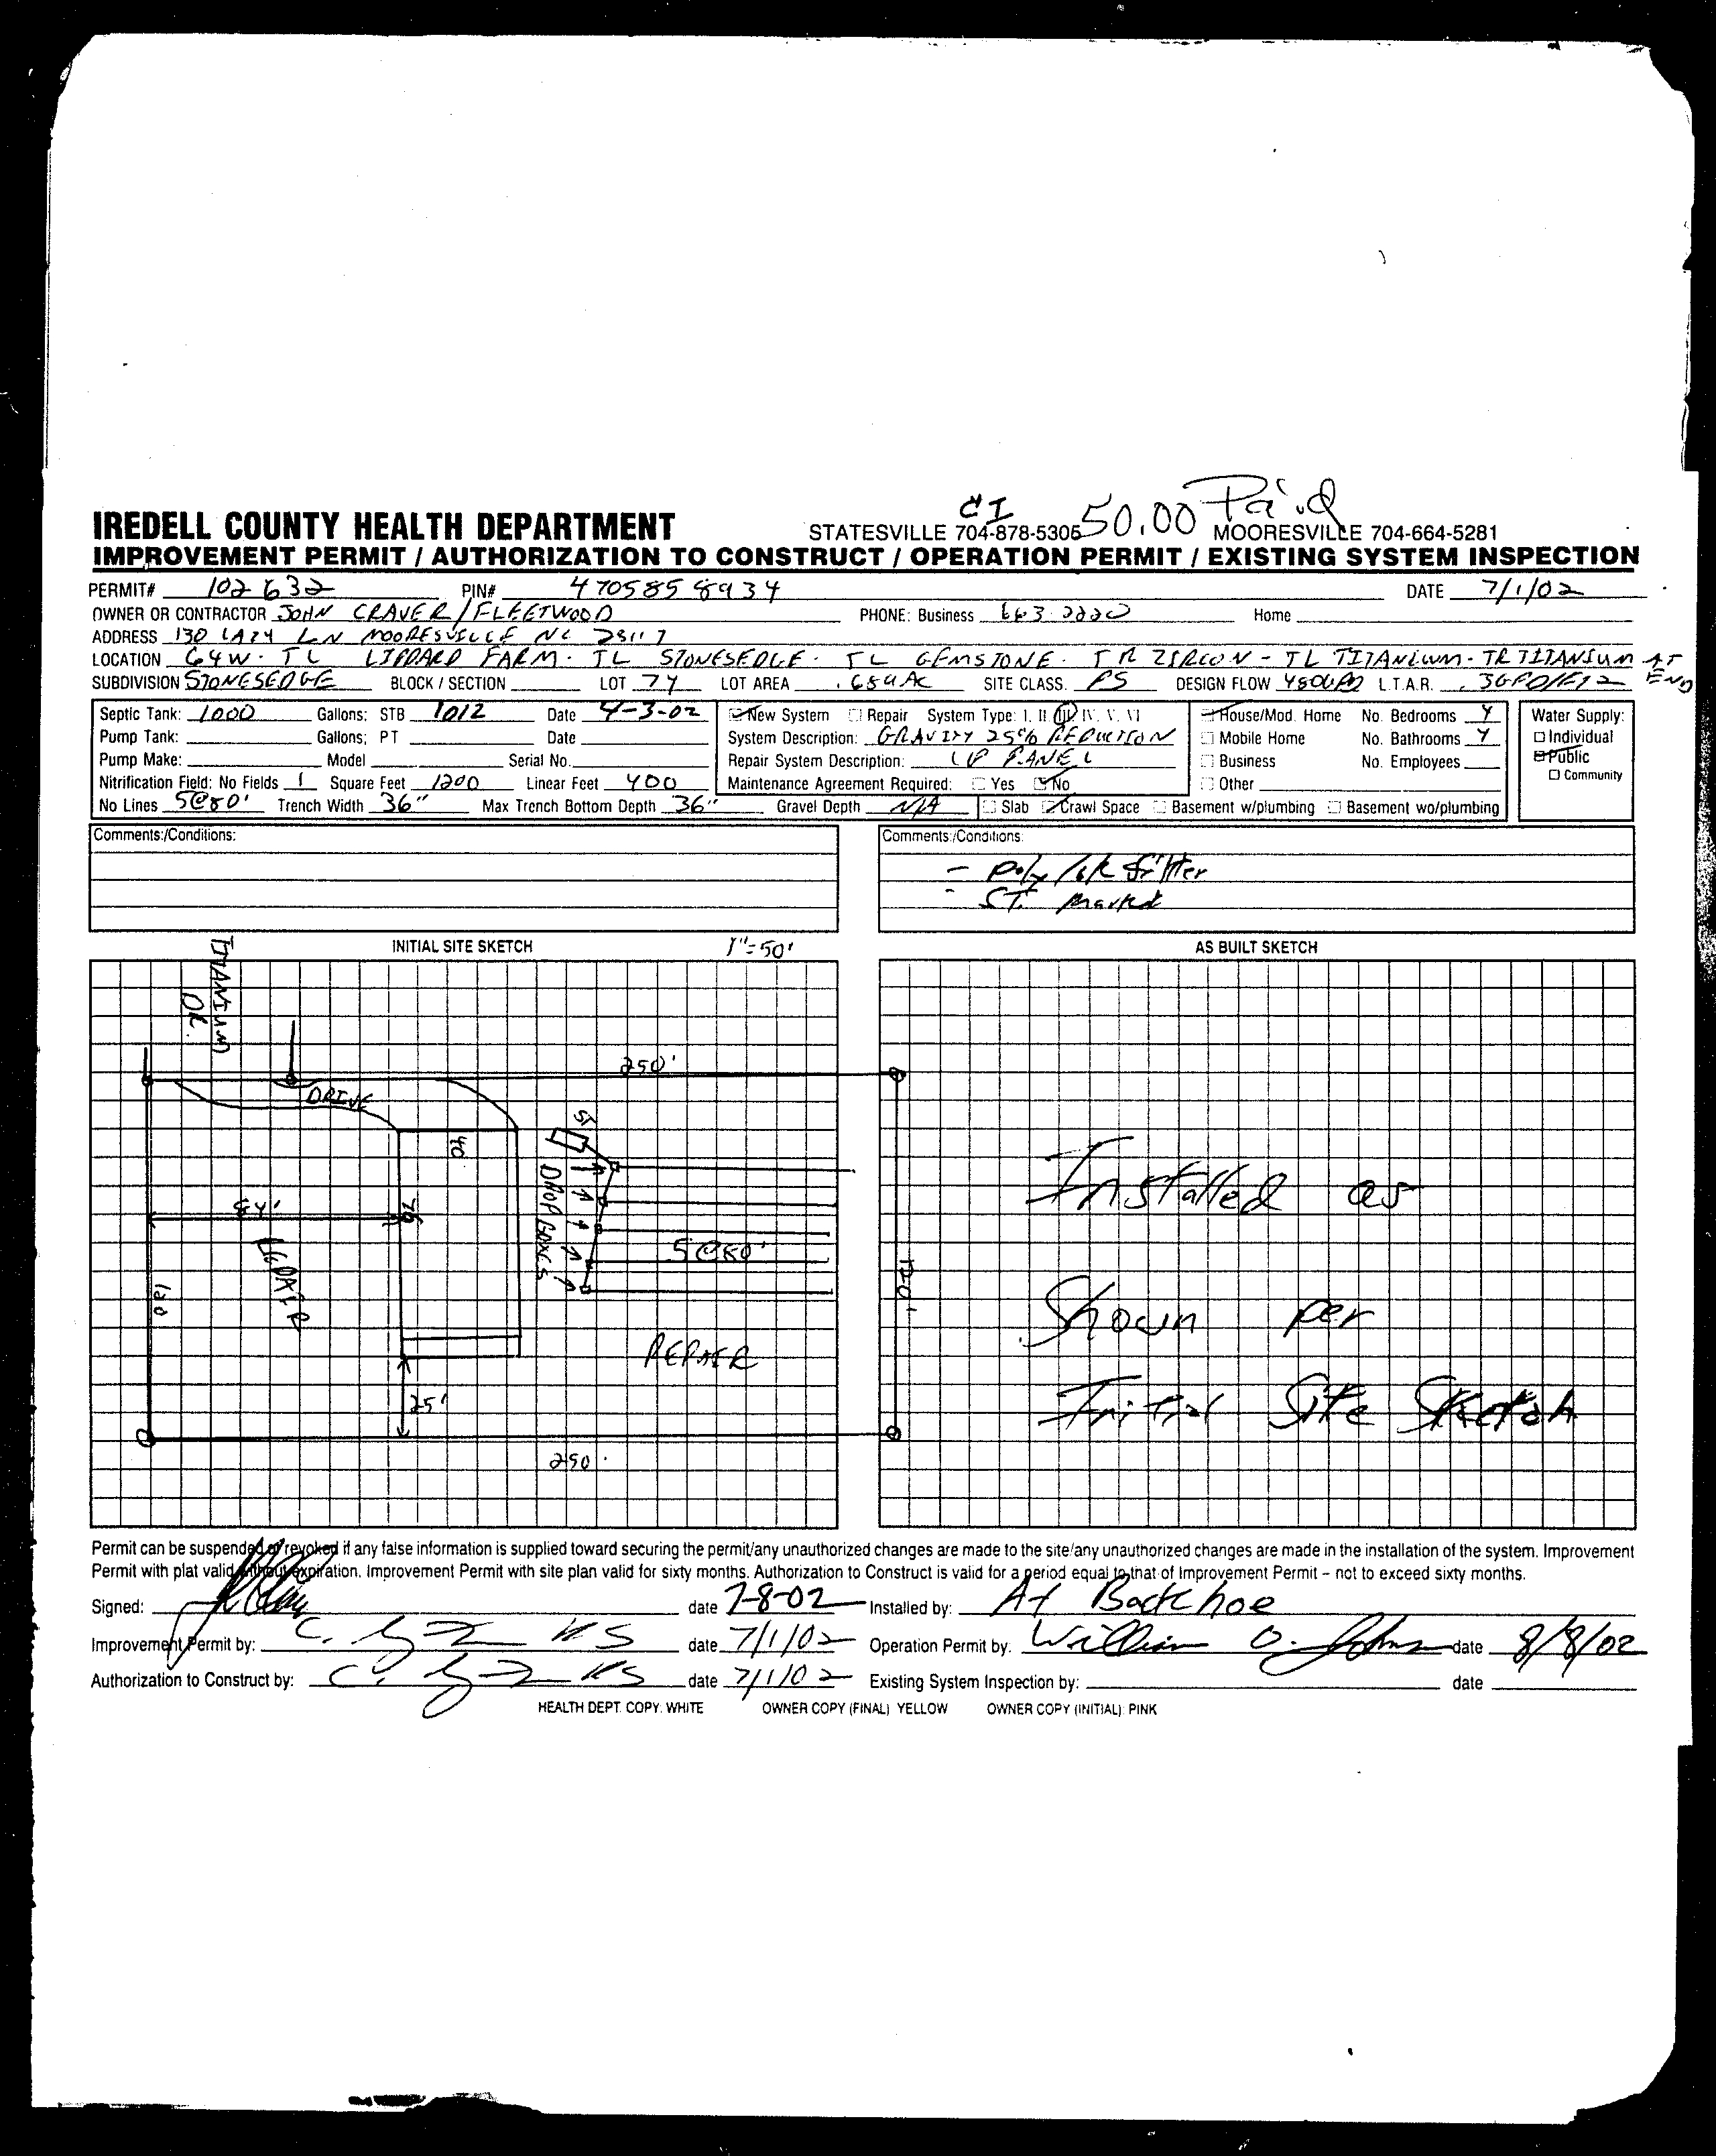 CI 50.00 Paid
IREDELL COUNTY HEALTH DEPARTMENT STATESVILLE 704-878-5305 MOORESVILLE 704-664-5281
IMPROVEMENT PERMIT / AUTHORIZATION TO CONSTRUCT / OPERATION PERMIT / EXISTING SYSTEM INSPECTION
PERMIT# 102632 PIN# 4705858934 DATE 7/1/02
OWNER OR CONTRACTOR JOHN CRAVER / FLEETWOOD PHONE: Business 663-2220 Home
ADDRESS 130 LAZY LN MOORESVILLE NC 28117
LOCATION 64W. TL LIPPARD FARM. TL STONESEDGE. TL GEMSTONE. TR ZIRCON - TL TITANIUM. TR TITANIUM AT END
SUBDIVISION STONESEDGE BLOCK / SECTION LOT 74 LOT AREA .689AC SITE CLASS. PS DESIGN FLOW 480GPD L.T.A.R. .3GPD/FT2
Septic Tank: 1000 Gallons: STB 1012 Date 4-3-02 New System Repair System Type: I, II, III, IV, V, VI House/Mod. Home No. Bedrooms 4 Water Supply:
Pump Tank: Gallons; PT Date System Description: GRAVITY 25% REDUCTION Mobile Home No. Bathrooms 4 Individual
Pump Make: Model Serial No. Repair System Description: PANEL Business No. Employees Public
Nitrification Field: No Fields 1 Square Feet 1200 Linear Feet 400 Maintenance Agreement Required: Yes No Other Community
No Lines 5@80' Trench Width 36" Max Trench Bottom Depth 36" Gravel Depth N/A Slab Crawl Space Basement w/plumbing Basement wo/plumbing
Comments:/Conditions: Comments:/Conditions:
- Poly lok filter
- ST. Marked
INITIAL SITE SKETCH 1"=50' AS BUILT SKETCH
TITANIUM DR.
250'
DRIVE
ST
40
DROP BOXES
Installed as
84' 76
5@80'
REPAIR
120 120'
Shown per
REPAIR
25'
Initial Site Sketch
250
Permit can be suspended or revoked if any false information is supplied toward securing the permit/any unauthorized changes are made to the site/any unauthorized changes are made in the installation of the system. Improvement
Permit with plat valid without expiration. Improvement Permit with site plan valid for sixty months. Authorization to Construct is valid for a period equal to that of Improvement Permit – not to exceed sixty months.
Signed: date 7-8-02 Installed by: A+ Backhoe
Improvement Permit by: date 7/1/02 Operation Permit by: William O. date 8/8/02
Authorization to Construct by: date 7/1/02 Existing System Inspection by: date
HEALTH DEPT. COPY: WHITE OWNER COPY (FINAL) YELLOW OWNER COPY (INITIAL): PINK